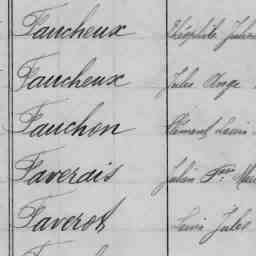 Faucheux Théophile Julien
Faucheux Jules Ange
Fauchon Clément Louis
Faverais Julien Fois Mar
Faverot Louis Jules